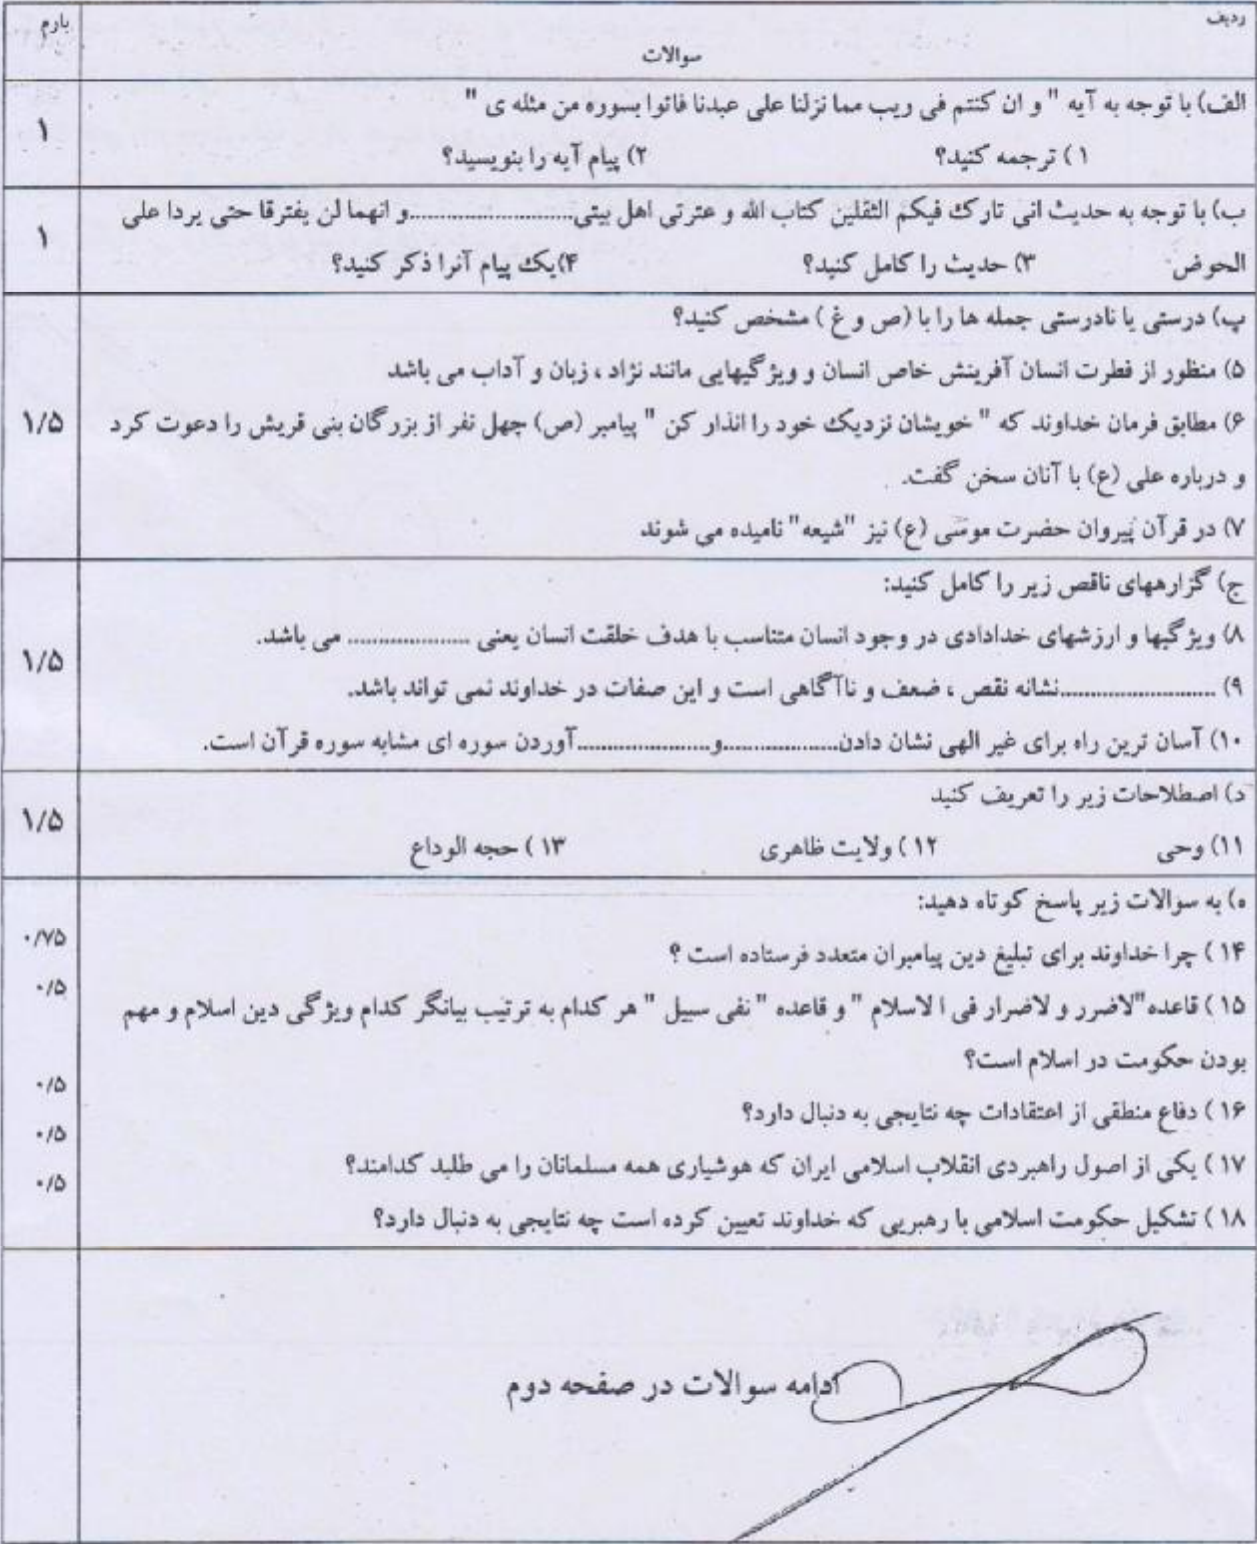 ردیف
بارم
سوالات
الف) با توجه به آیه " و ان کنتم فی ریب مما نزلنا علی عبدنا فاتوا بسوره من مثله ی "
۱) ترجمه کنید؟ ۲) پیام آیه را بنویسید؟
۱
ب) با توجه به حدیث انی تارک فیکم الثقلین کتاب الله و عترتی اهل بیتی............................و انهما لن یفترقا حتی یردا علی
الحوض ۳) حدیث را کامل کنید؟ ۴)یک پیام آنرا ذکر کنید؟
۱
پ) درستی یا نادرستی جمله ها را با (ص و غ ) مشخص کنید؟
۵) منظور از فطرت انسان آفرینش خاص انسان و ویژگیهایی مانند نژاد ، زبان و آداب می باشد
۶) مطابق فرمان خداوند که " خویشان نزدیک خود را انذار کن " پیامبر (ص) چهل نفر از بزرگان بنی قریش را دعوت کرد
و درباره علی (ع) با آنان سخن گفت.
۷) در قرآن پیروان حضرت موسی (ع) نیز "شیعه" نامیده می شوند
۱/۵
ج) گزارههای ناقص زیر را کامل کنید:
۸) ویژگیها و ارزشهای خدادادی در وجود انسان متناسب با هدف خلقت انسان یعنی .................... می باشد.
۹) ..........................نشانه نقص ، ضعف و ناآگاهی است و این صفات در خداوند نمی تواند باشد.
۱۰) آسان ترین راه برای غیر الهی نشان دادن....................و......................آوردن سوره ای مشابه سوره قرآن است.
۱/۵
د) اصطلاحات زیر را تعریف کنید
۱۱) وحی ۱۲ ) ولایت ظاهری ۱۳ ) حجه الوداع
۱/۵
ه) به سوالات زیر پاسخ کوتاه دهید:
۱۴ ) چرا خداوند برای تبلیغ دین پیامبران متعدد فرستاده است ؟
۰/۷۵
۱۵ ) قاعده"لاضرر و لاضرار فی ا لاسلام " و قاعده " نفی سبیل " هر کدام به ترتیب بیانگر کدام ویژگی دین اسلام و مهم
۰/۵
بودن حکومت در اسلام است؟
۱۶ ) دفاع منطقی از اعتقادات چه نتایجی به دنبال دارد؟
۰/۵
۱۷ ) یکی از اصول راهبردی انقلاب اسلامی ایران که هوشیاری همه مسلمانان را می طلبد کدامند؟
۰/۵
۱۸ ) تشکیل حکومت اسلامی با رهبریی که خداوند تعیین کرده است چه نتایجی به دنبال دارد؟
۰/۵
ادامه سوالات در صفحه دوم